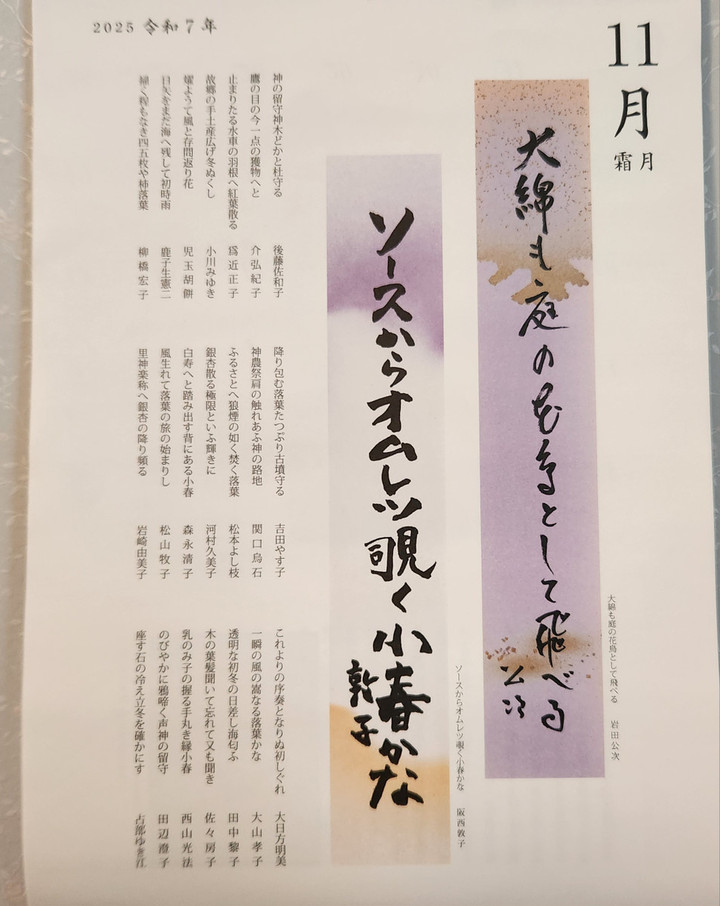 2025 令和7年
11月
霜月
大綿も庭の花鳥として飛べる
公次
大綿も庭の花鳥として飛べる 岩田公次
ソースからオムレツ覗く小春かな
敦子
ソースからオムレツ覗く小春かな 阪西敦子
神の留守神木どかと杜守る 後藤佐和子
鷹の目の今一点の獲物へと 介弘紀子
止まりたる水車の羽根へ紅葉散る 爲近正子
故郷の手土産広げ冬ぬくし 小川みゆき
嬥ようて風と存問返り花 児玉胡餅
日矢をまだ海へ残して初時雨 鹿子生憲二
掃く程もなき四五枚や柿落葉 柳橋宏子
降り包む落葉たつぷり古墳守る 吉田やす子
神農祭肩の触れあふ神の路地 関口烏石
ふるさとへ狼煙の如く焚く落葉 松本よし枝
銀杏散る極限といふ輝きに 河村久美子
白寿へと踏み出す背にある小春 森永清子
風生れて落葉の旅の始まりし 松山牧子
里神楽称へ銀杏の降り頻る 岩崎由美子
これよりの序奏となりぬ初しぐれ 大日方明美
一瞬の風の嵩なる落葉かな 大山孝子
透明な初冬の日差し海匂ふ 田中黎子
木の葉髪聞いて忘れて又も聞き 佐々房子
乳のみ子の握る手丸き縁小春 西山光法
のびやかに鴉啼く声神の留守 田辺澄子
座す石の冷え立冬を確かにす 占部ゆき江